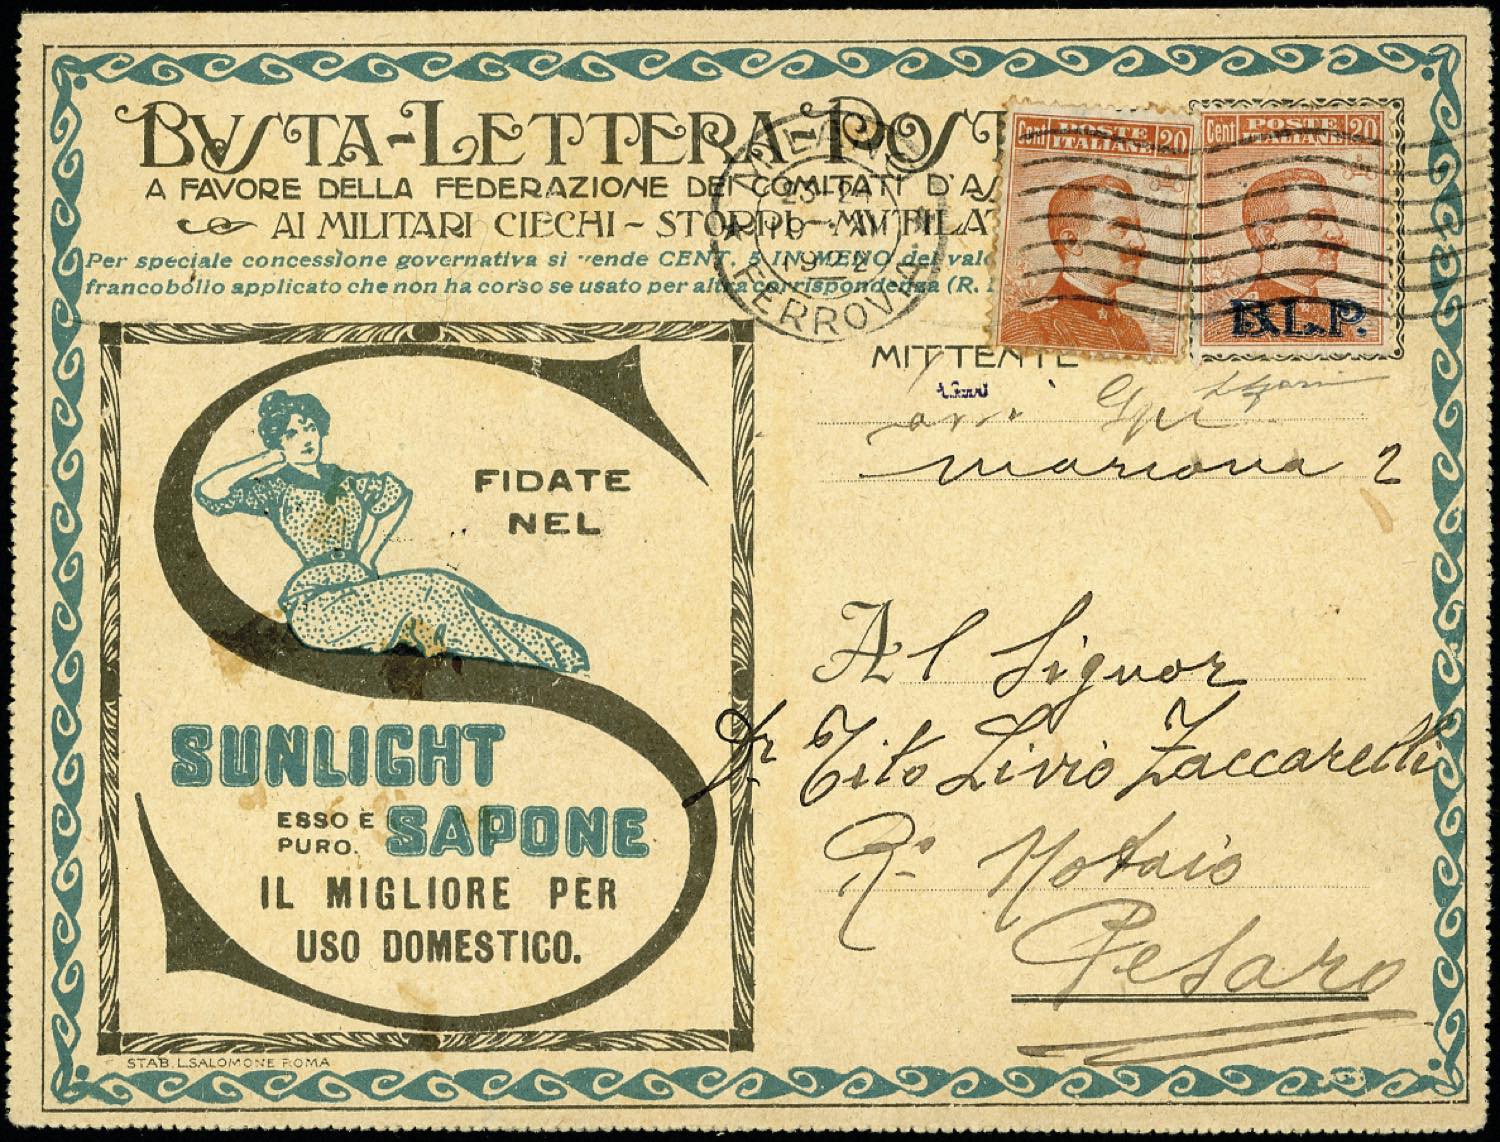 BVSTA-LETTERA-POST
A FAVORE DELLA FEDERAZIONE DEI COMITATI D'AS
AI MILITARI CIECHI - STORPI - MVTILAT
Per speciale concessione governativa si vende CENT. 5 IN MENO del valo
francobollo applicato che non ha corso se usato per altra corrispondenza (R.
MILANO
23-24
19 XI
1922
FERROVIA
Cent POSTE ITALIANE 20
Cent POSTE ITALIANE 20
B.L.P.
MITTENTE
2
FIDATE
NEL
SUNLIGHT
ESSO È
PURO.
SAPONE
IL MIGLIORE PER
USO DOMESTICO.
STAB. L. SALOMONE ROMA
Al Signor
Dr Tito Livio Zaccarelli
Ro Notaio
Pesaro